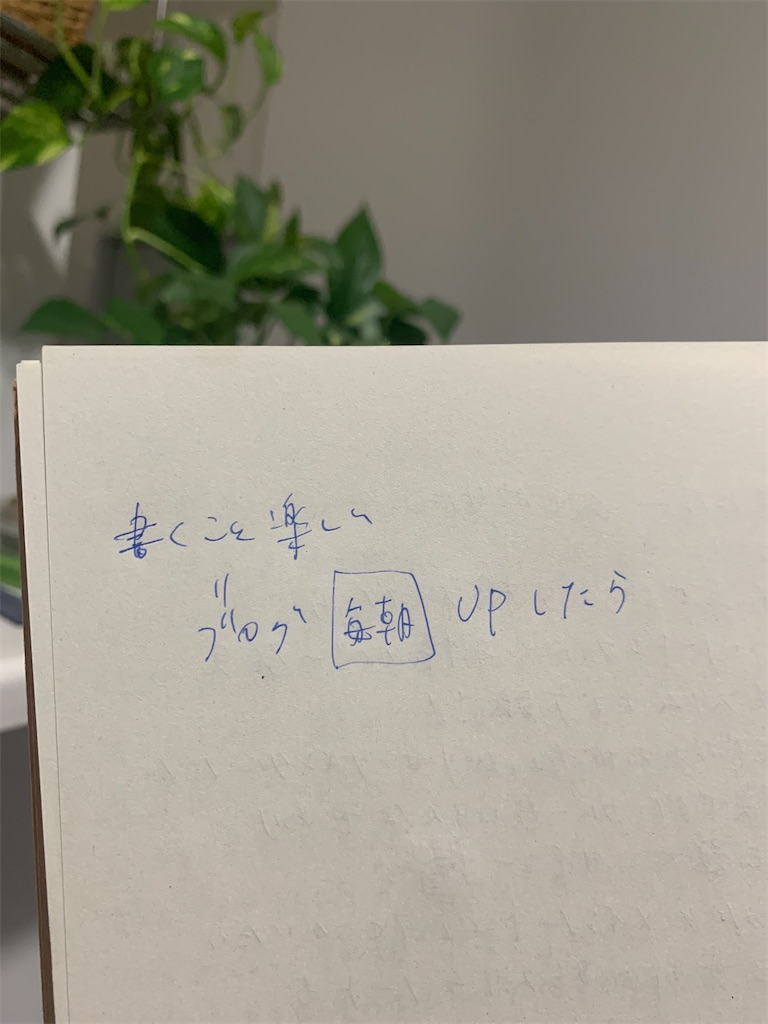 書くこと楽しい
〃
ブログ 毎朝 UPしたら